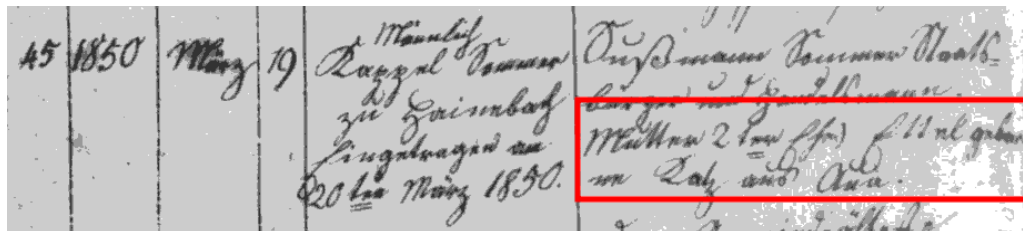 45 1850 März 19 Männlich
Kappel Sommer
zu Hainebach
Eingetragen am
20ten März 1850.
Sußmann Sommer Staats-
bürger und Handelsmann.
Mutter 2ter Ehe) Ettel gebor
ne Katz aus Aua.